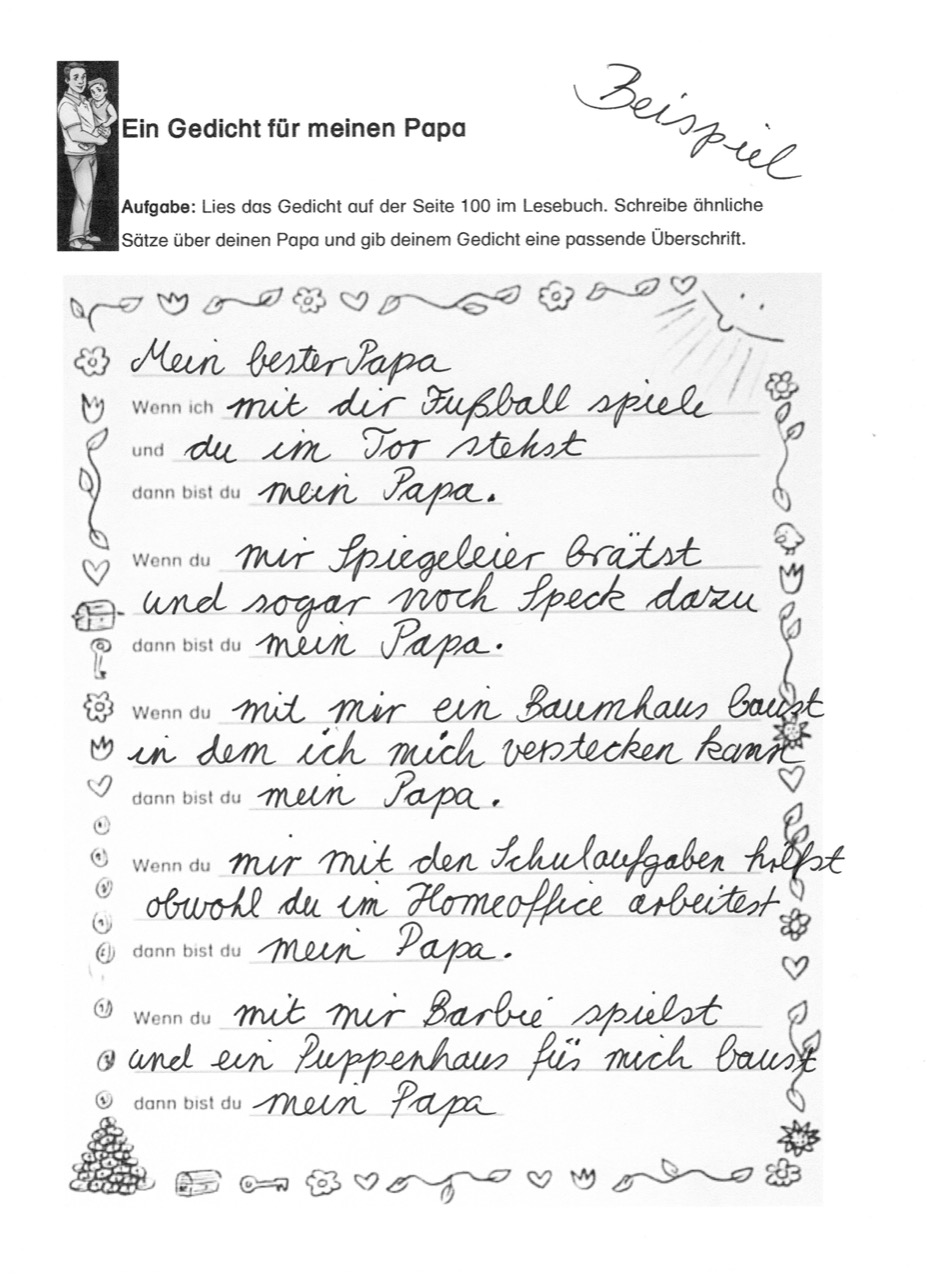 Beispiel
Ein Gedicht für meinen Papa
Aufgabe: Lies das Gedicht auf der Seite 100 im Lesebuch. Schreibe ähnliche
Sätze über deinen Papa und gib deinem Gedicht eine passende Überschrift.
Mein bester Papa
Wenn ich mit dir Fußball spiele
und du im Tor stehst
dann bist du mein Papa.
Wenn du mir Spiegeleier brätst
und sogar noch Speck dazu
dann bist du mein Papa.
Wenn du mit mir ein Baumhaus baust
in dem ich mich verstecken kann
dann bist du mein Papa.
Wenn du mir mit den Schulaufgaben hilfst
obwohl du im Homeoffice arbeitest
dann bist du mein Papa.
Wenn du mit mir Barbie spielst
und ein Puppenhaus für mich baust
dann bist du mein Papa